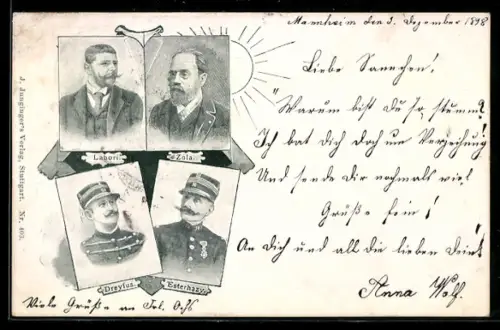 Mannheim den 3. Dezember 1898
Liebe Sannchen!
"Warum bist Du so stumm?
Ich bat dich doch um Verzeihung!
Und sende dir nochmals viel
Grüße fein!
An Dich und all die lieben Deinen
Anna Wolf.
Labori.
Zola.
Dreyfus.
Esterhazy.
Viele Grüße an Frl. Ochs
J. Junginger's Verlag, Stuttgart. Nr. 405.